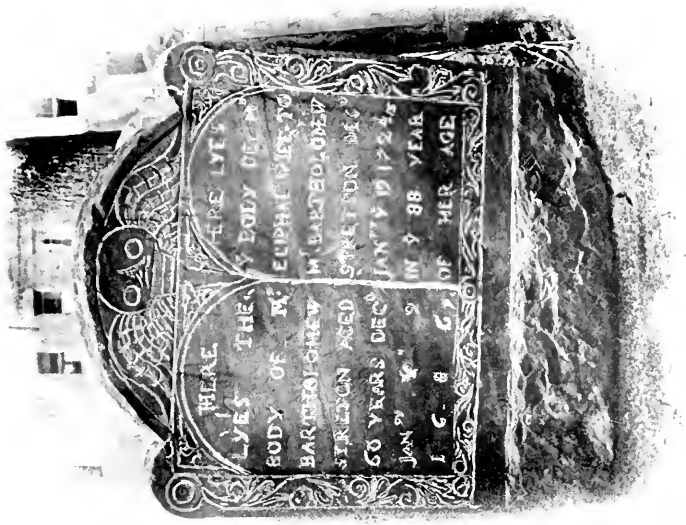 HERE
LYES THE
BODY OF Mr
BARTHOLOMEW
STRETON AGED
60 YEARS DECD
JANry Ye 9
1 6 8 6/7
HERE LYES
Y BODY OF Mrs
ELIPHAL WIFE TO
Mr BARTHOLOMEW
STRETTON DECd
JANry Y 19 172 4/5
IN Y 88 YEAR
OF HER AGE